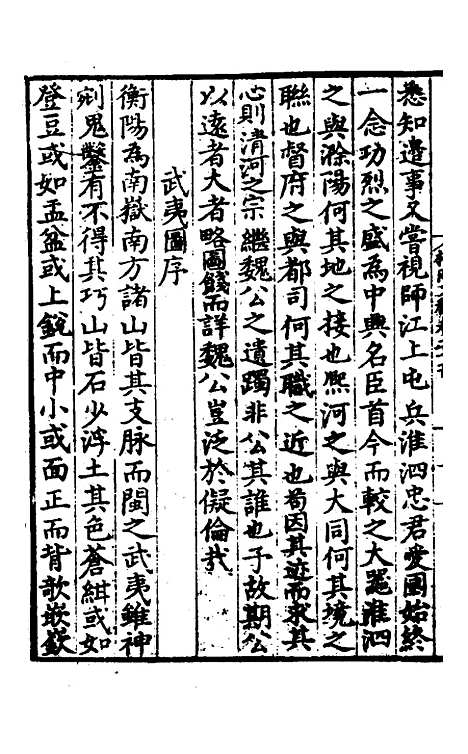 悉知邊事又嘗視師江上屯兵淮泗忠君愛國始終
一念功烈之盛為中興名臣首今而較之大
淮泗
之與滁陽何其地之接也熈河之與大同何其境之
聯也督府之與都司何其職之近也苟因其迹而求其
心則清河之宗繼魏公之遺躅非公其誰也予故期公
以遠者大者略圖餞而詳魏公豈泛於儗倫哉
武夷圖序
衡陽為南嶽南方諸山皆其支脉而閩之武夷雖神
剜鬼鑿有不得其巧山皆石少浮土其色蒼紺或如
登豆或如盂盆或上銳而中小或面正而背欹嵌